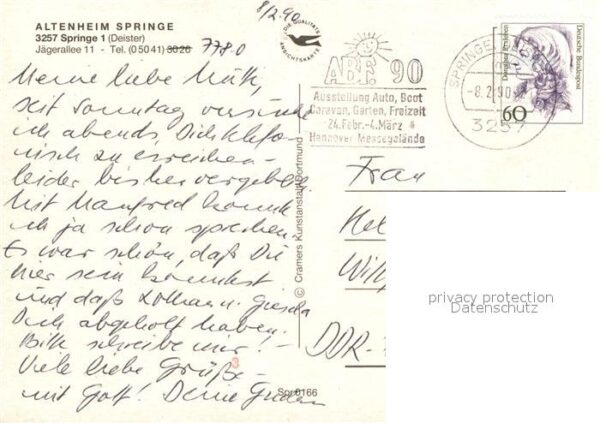 ALTENHEIM SPRINGE
3257 Springe 1 (Deister)
Jägerallee 11 - Tel. (05041) 3026 7780
8/2.90
DIE QUALITÄTS
ANSICHTSKARTE
ABF 90
Ausstellung Auto, Boot
Caravan, Garten, Freizeit
24.Febr.-4.März
Hannover Messegelände
SPRINGE
-8.2.90
3257
Deutsche Bundespost
60
Meine liebe
seit Sonntag versuche
ich abends, Dich telefo-
nisch zu erreichen -
leider bisher vergebens.
Mit Manfred konnte
ich ja schon sprechen.
Es war schön, daß Du
hier sein konntest
und daß u. Gisela
Dich abgeholt haben.
Bitte schreibe mir! -
Viele liebe Grüße -
mit Gott! Deine
© Cramers Kunstanstalt Dortmund
Frau
Hel
DDR-
privacy protection
Datenschutz
3
Spr 0166